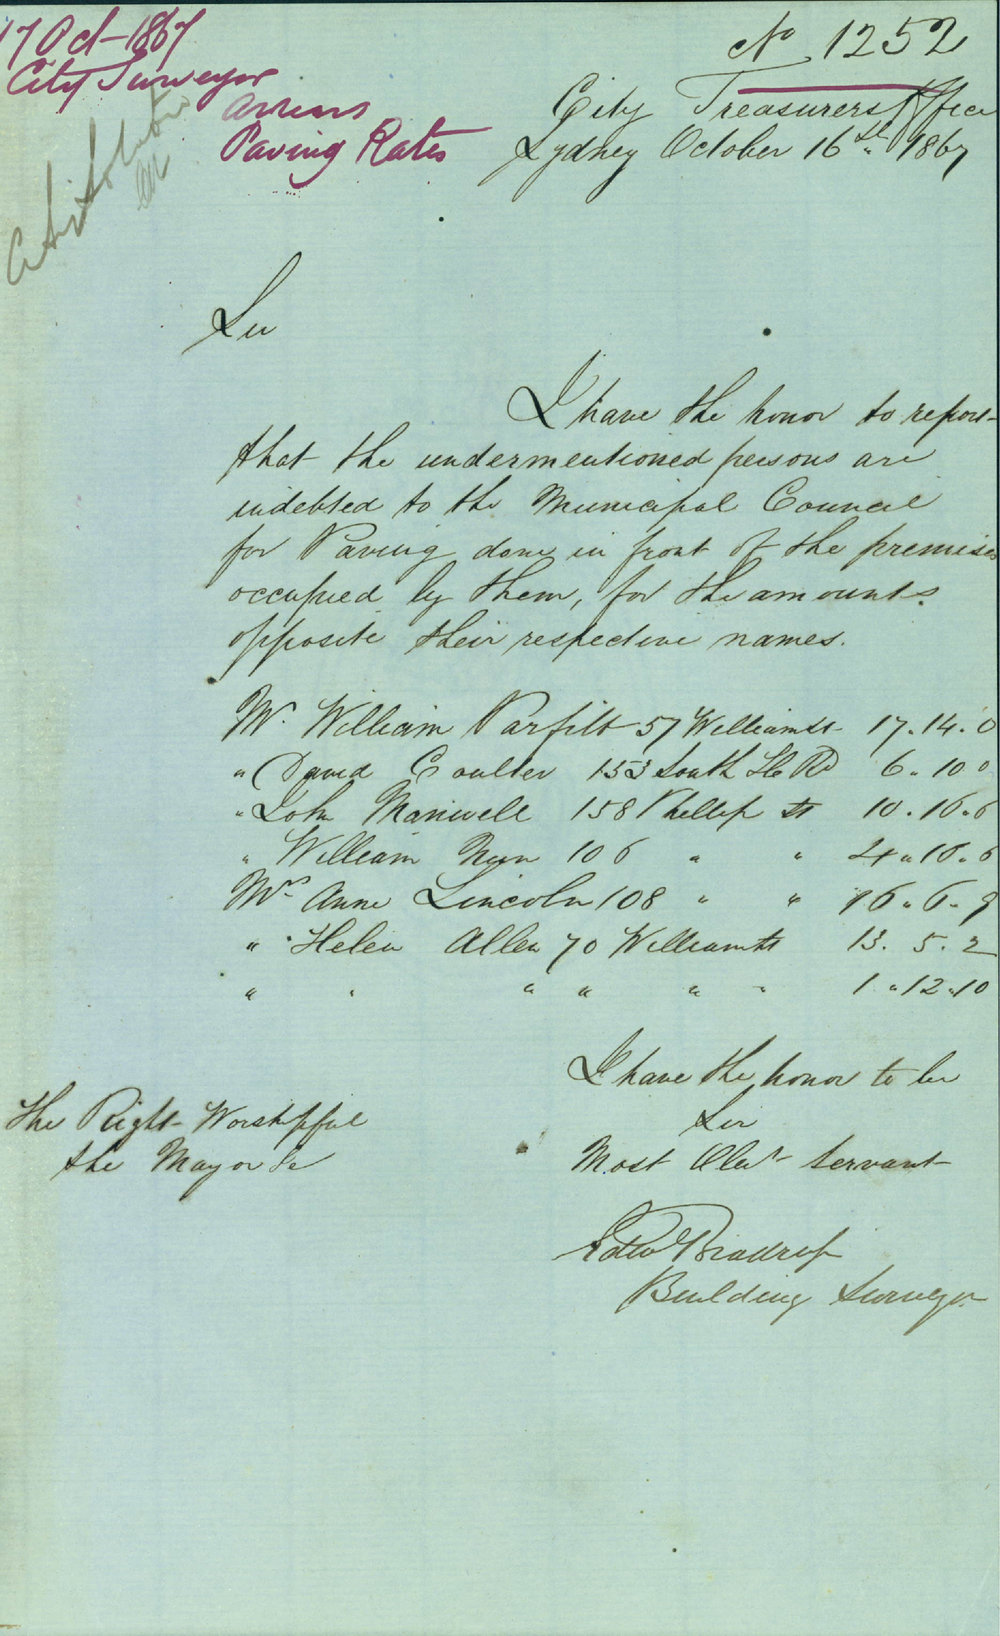 17 Oct - 1867
City Surveyor
Arrears
Paving Rates
City Solicitor
No 1252
City Treasurers Office
Sydney October 16th 1867
Sir
I have the honor to report
that the undermentioned persons are
indebted to the Municipal Council
for Paving done in front of the premises
occupied by them, for the amounts
opposite their respective names.
Mr. William Parfitt 57 Williamst 17.14.0
" David Coulter 153 South Hd Rd 6.10.0
" John Maxwell 158 Phillip St 10.16.6
" William Nun 106 " " 4.16.6
Mrs Anne Lincoln 108 " " 16.6.9
" Helen Allen 70 Williamst 13.5.2
" " " " " " 1.12.10
I have the honor to be
Sir
Most Obt Servant
Edw Bradridge
Building Surveyor
The Right Worshpful
the Mayor &c